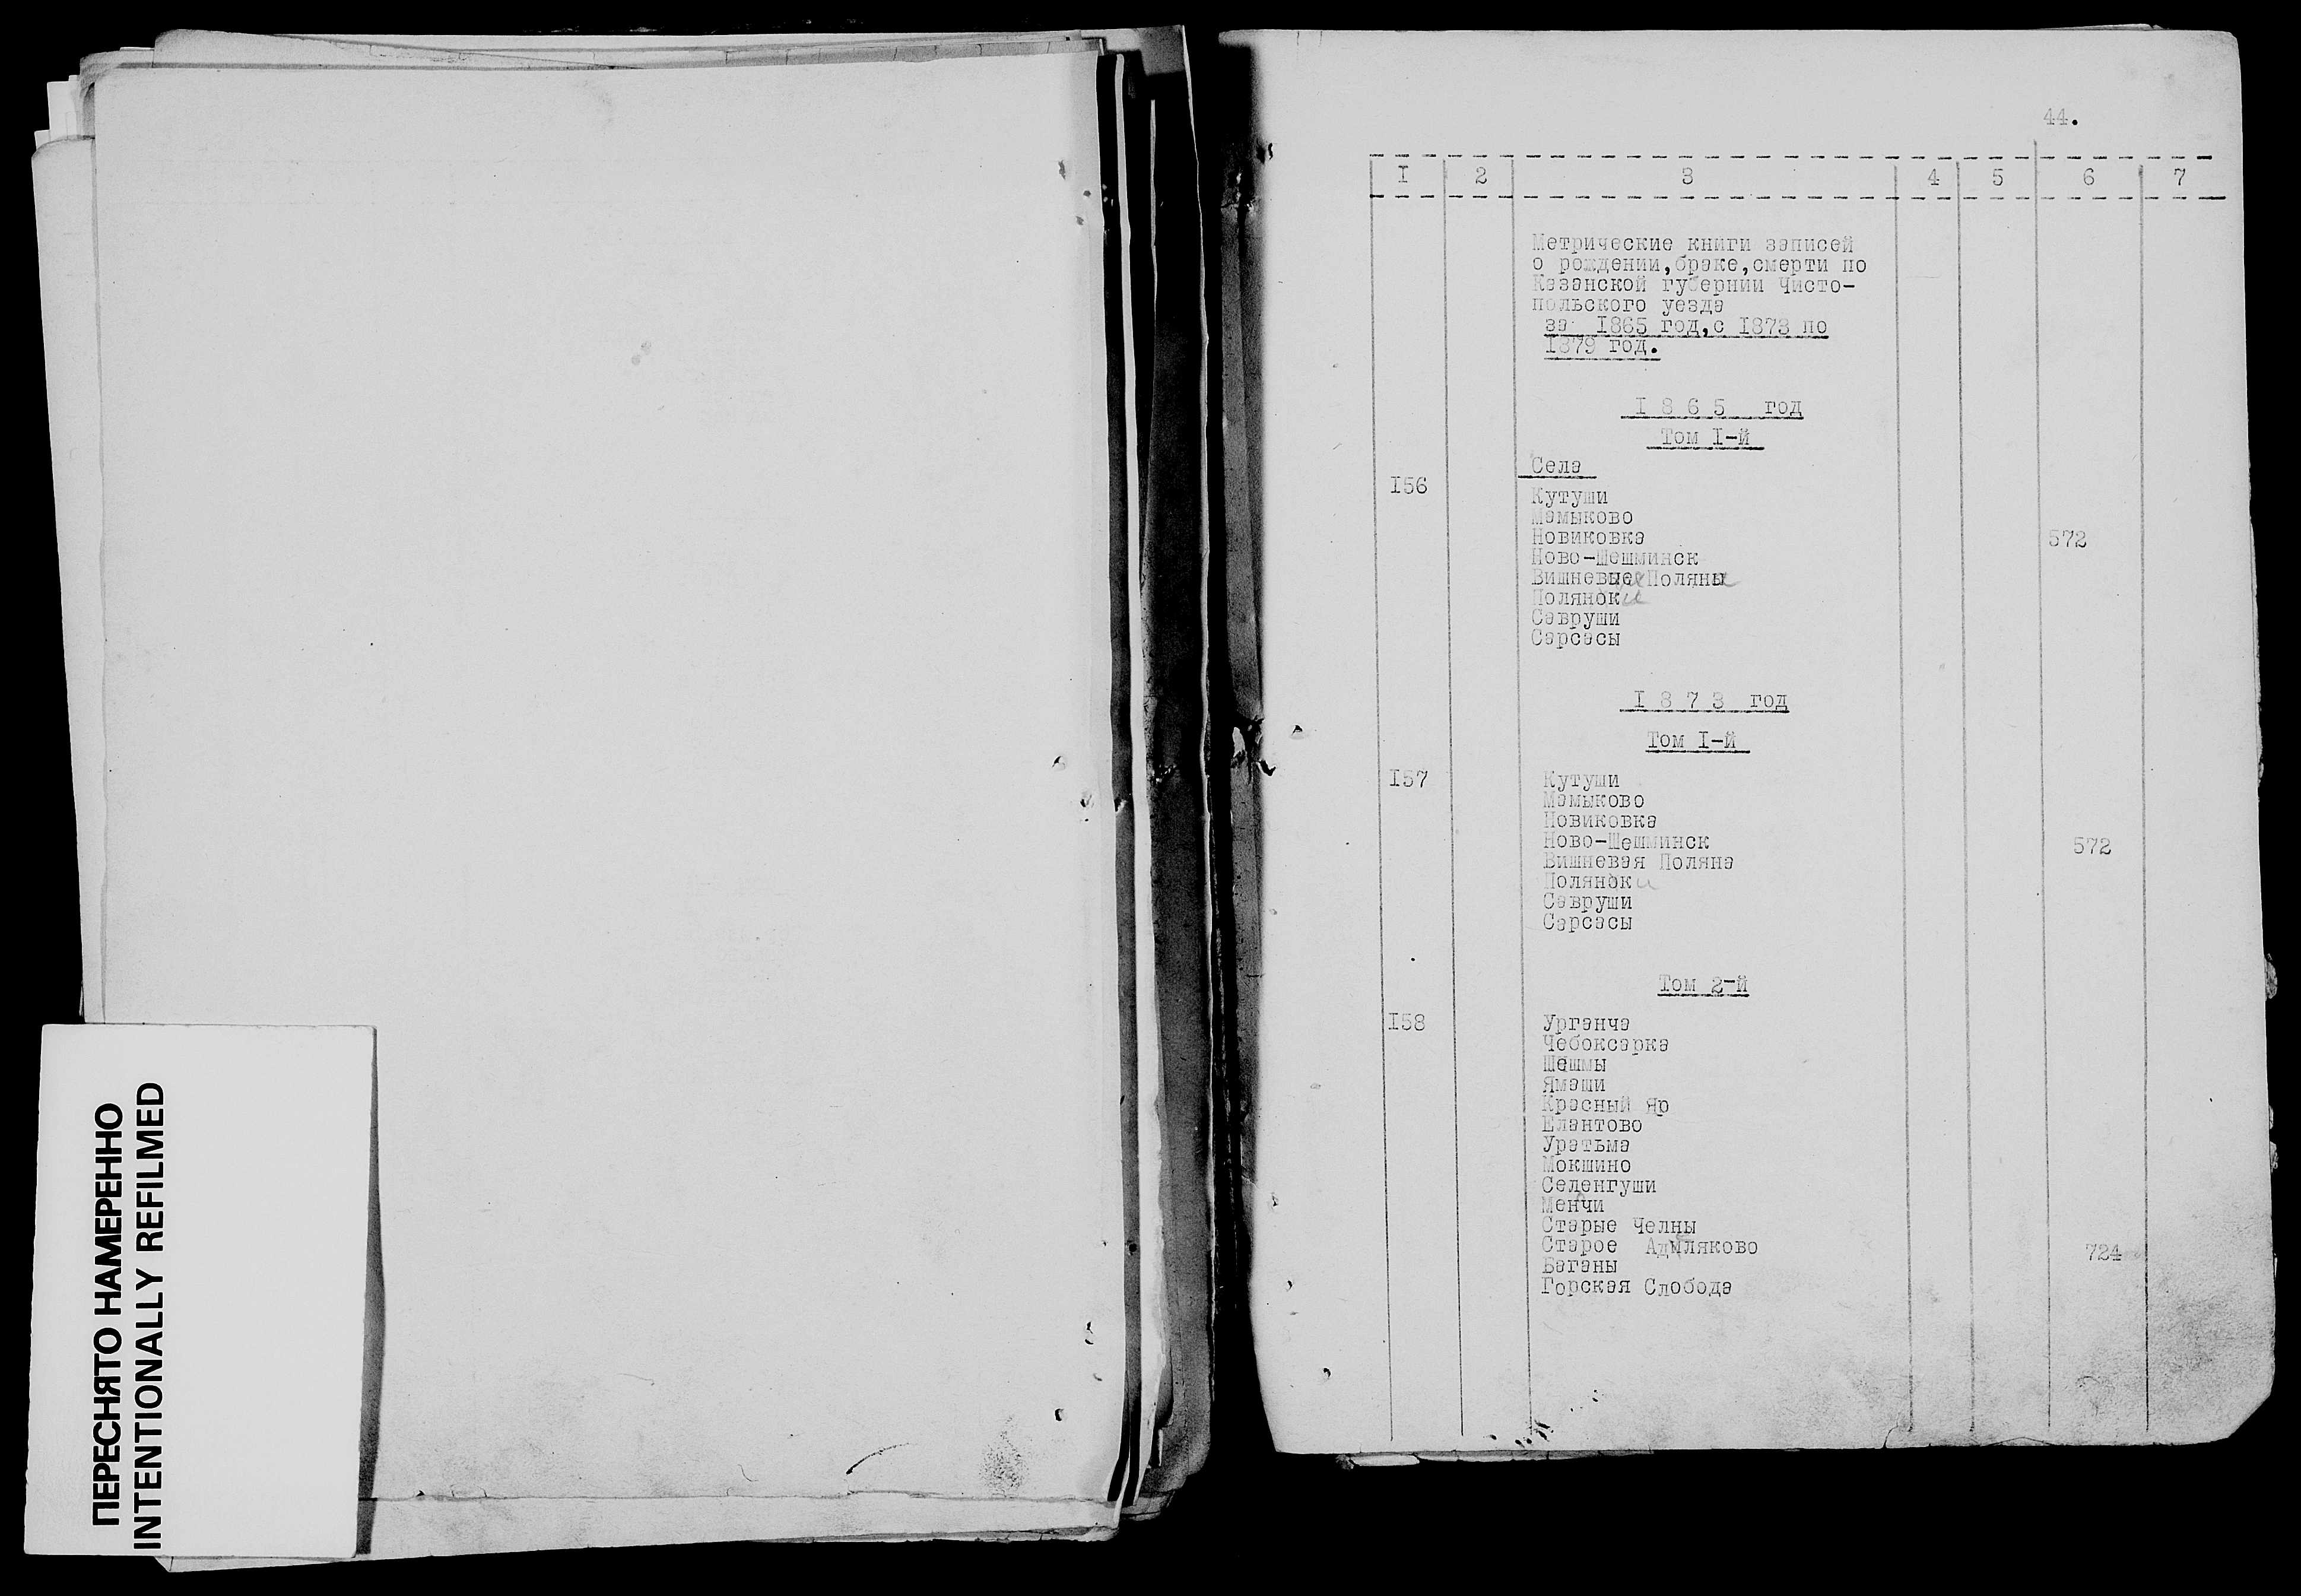 ПЕРЕСНЯТО НАМЕРЕННО
INTENTIONALLY REFILMED
44.
I 2 3 4 5 6 7
Метрические книги записей
о рождении,браке,смерти по
Казанской губернии Чисто-
польского уезда
за 1865 год,с 1873 по
1879 год.
I 8 6 5 год
Том I-й
Села
I56
Кутуши
Мамыково
Новиковка 572
Ново-Шешминск
Вишневые Поляны
Полянки
Савруши
Сарсасы
I 8 7 3 год
Том I-й
I57 Кутуши
Мамыково
Новиковка
Ново-Шешминск 572
Вишневая Поляна
Полянки
Савруши
Сарсасы
Том 2-й
I58 Урганча
Чебоксарка
Шешмы
Ямаши
Красный Яр
Елантово
Уратьма
Мокшино
Селенгуши
Менчи
Старые Челны
Старое Адмляково 724
Баганы
Горская Слобода